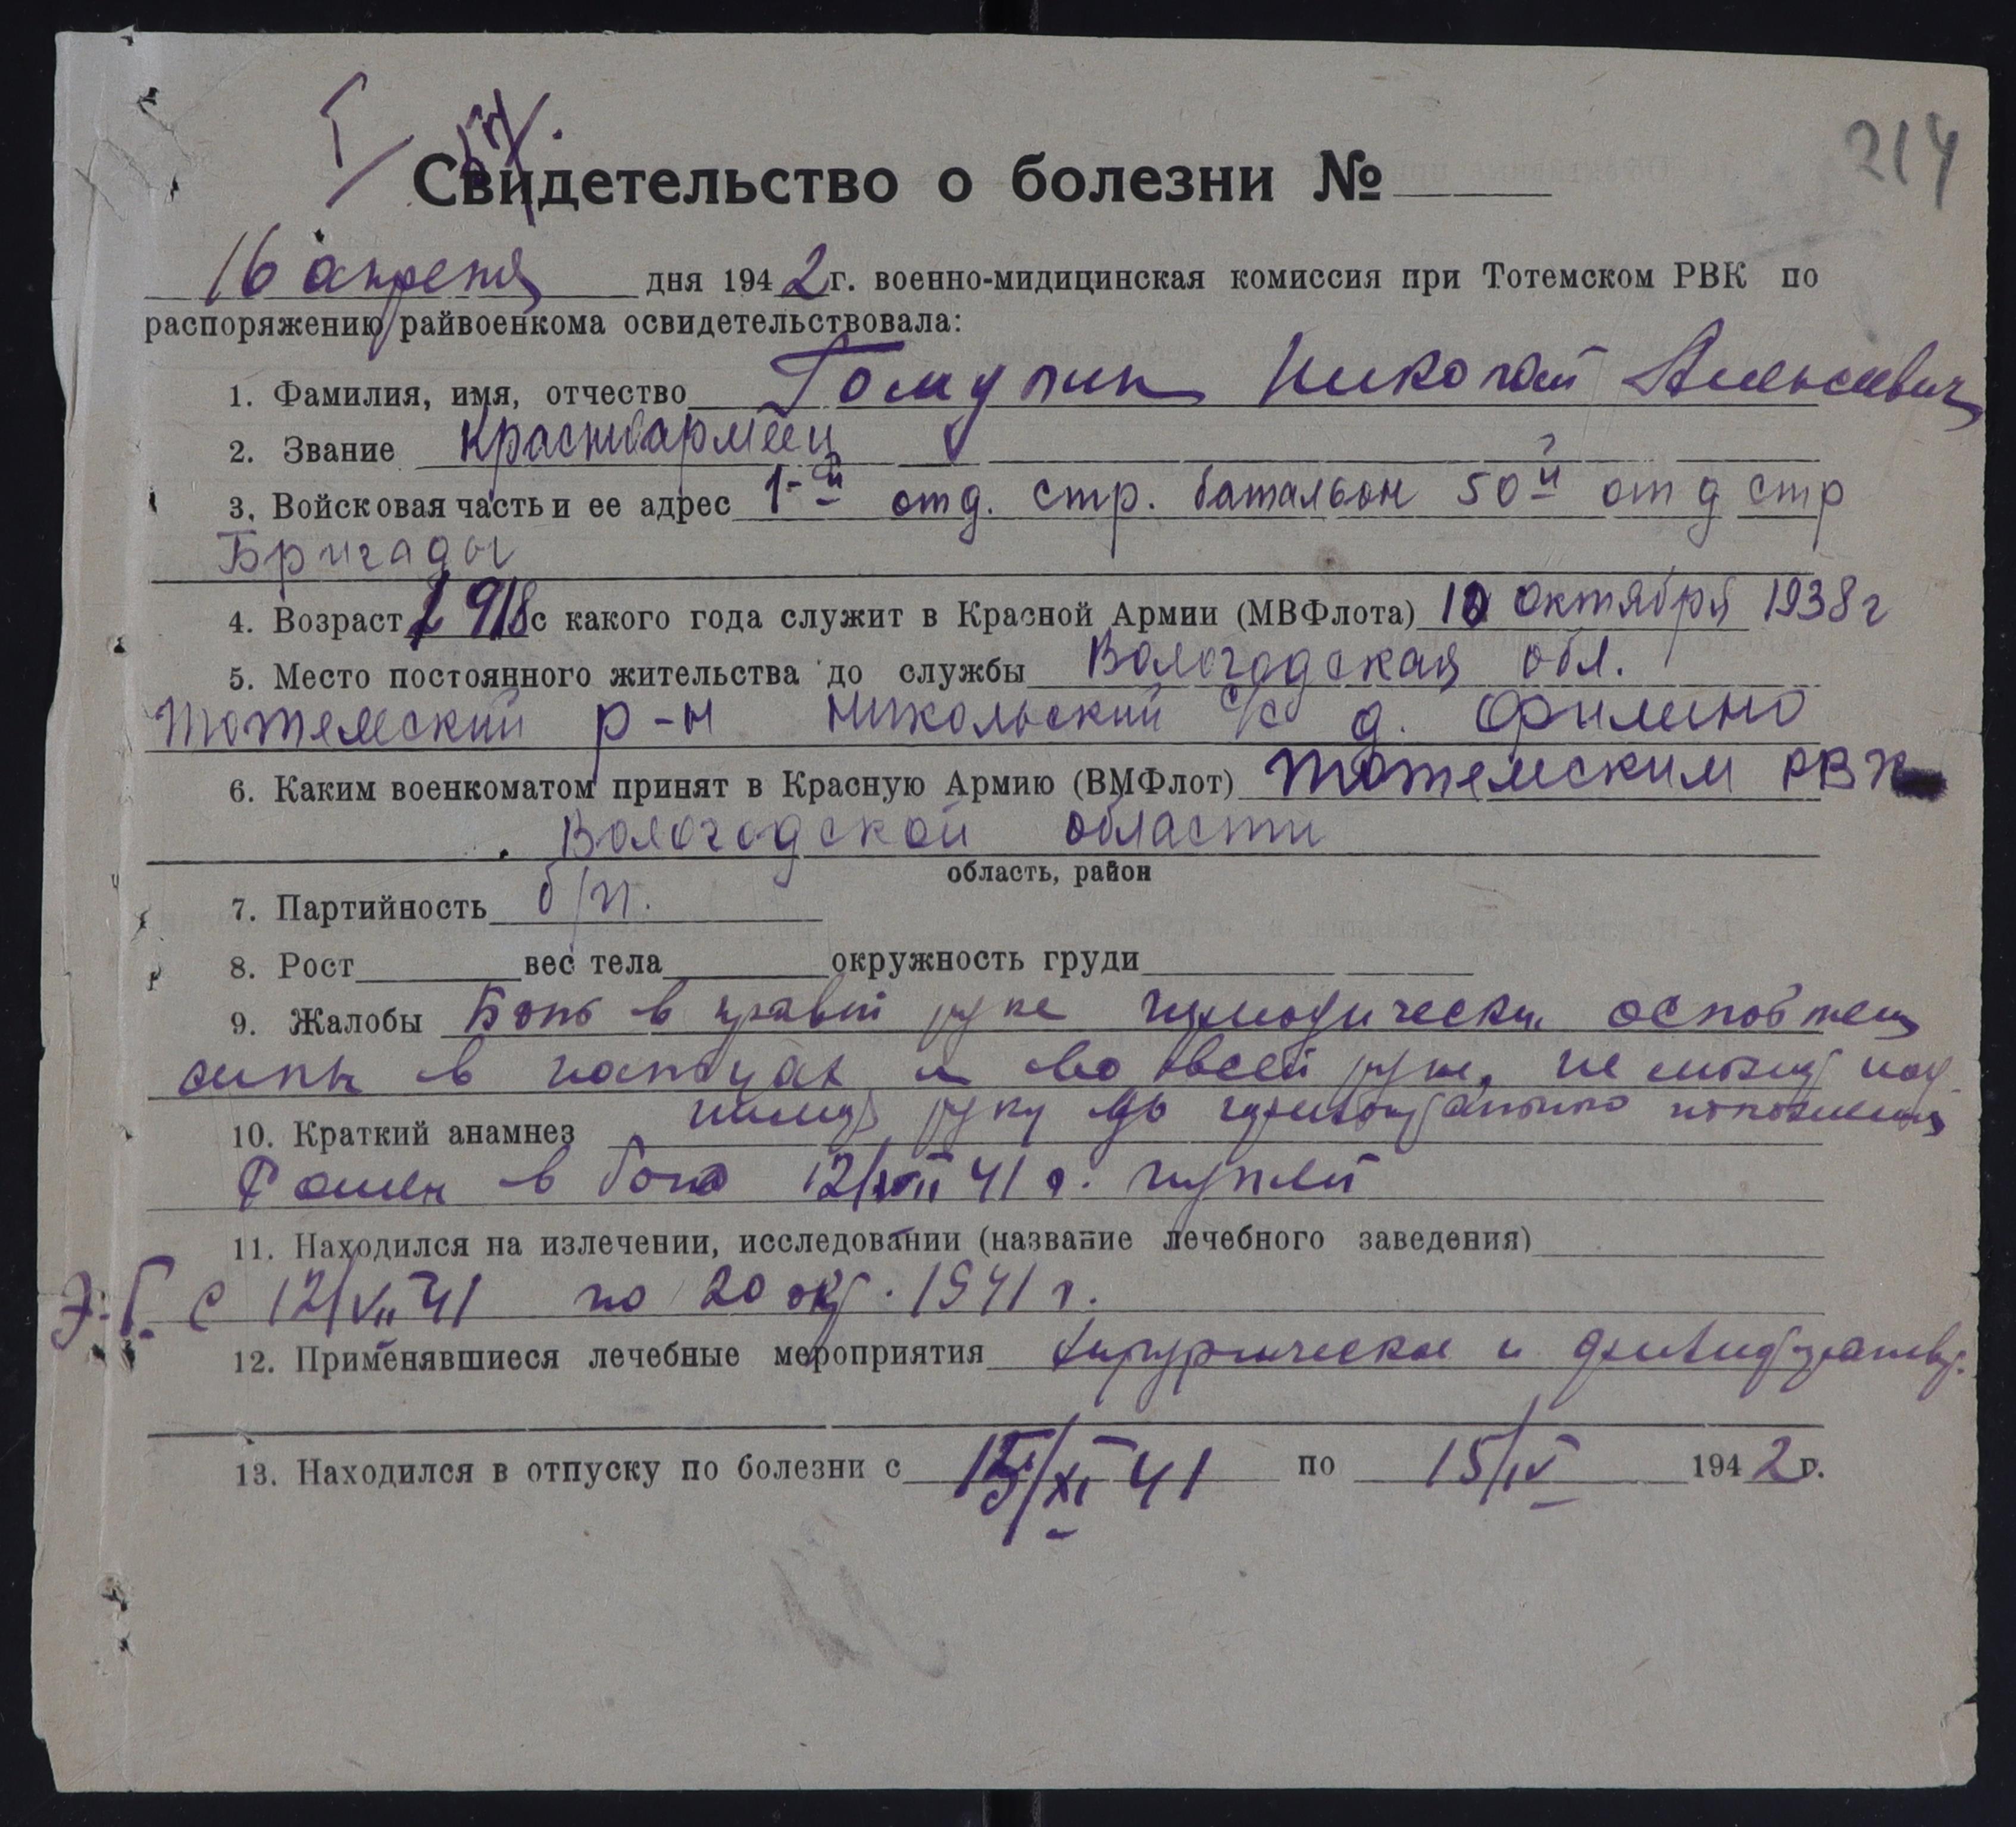 214
Свидетельство о болезни №
16 апреля дня 1942г. военно-мидицинская комиссия при Тотемском РВК по
распоряжению райвоенкома освидетельствовала:
1. Фамилия, имя, отчество Николай
2. Звание Красноармеец
3. Войсковая часть и ее адрес 1-й отд. стр. батальон 50й отд стр
Бригады
4. Возраст 1918 с какого года служит в Красной Армии (МВФлота) 10 октября 1938г
5. Место постоянного жительства до службы Вологодская обл.
Тотемский р-н Никольский с/с д. Филино
6. Каким военкоматом принят в Красную Армию (ВМФлот) Тотемским РВК
Вологодской области
область, район
7. Партийность б/п.
8. Рост вес тела окружность груди
9. Жалобы Боль в правой руке периодически
силы в пальцах и во всей руке, не может под
10. Краткий анамнез руку до горизонтально положения
Ранен в бою 12/VII 41 г. пулей
11. Находился на излечении, исследовании (название лечебного заведения)
Э.Г. с 12/VII 41 по 20 окт. 1941 г.
12. Применявшиеся лечебные мероприятия хирургическое и
13. Находился в отпуску по болезни с 15/XI 41 по 15/IV 1942г.